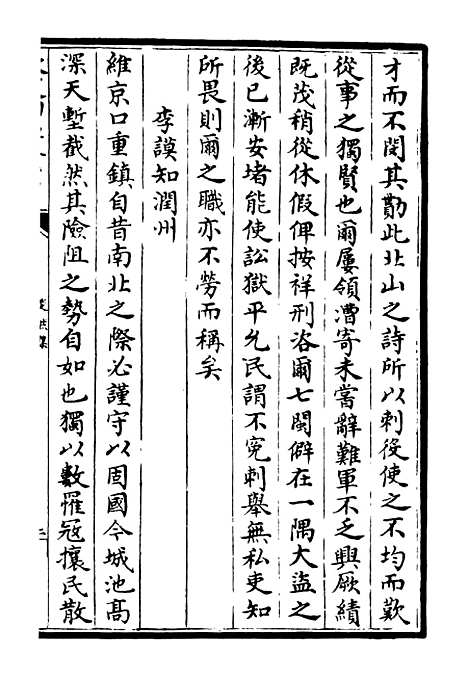 才而不閔其勩此北山之詩所以刺役使之不均而歎
從事之獨賢也爾屢領漕寄未嘗辭難軍不乏興厥績
既茂稍從休假俾按祥刑洛爾七閩僻在一隅大盜之
後已漸安堵能使訟獄平允民謂不冤刺舉無私吏知
所畏則爾之職亦不勞而稱矣
李謨知潤州
維京口重鎮自昔南北之際必謹守以固國今城池髙
深天塹截然其險阻之勢自如也獨以數罹冦攘民散